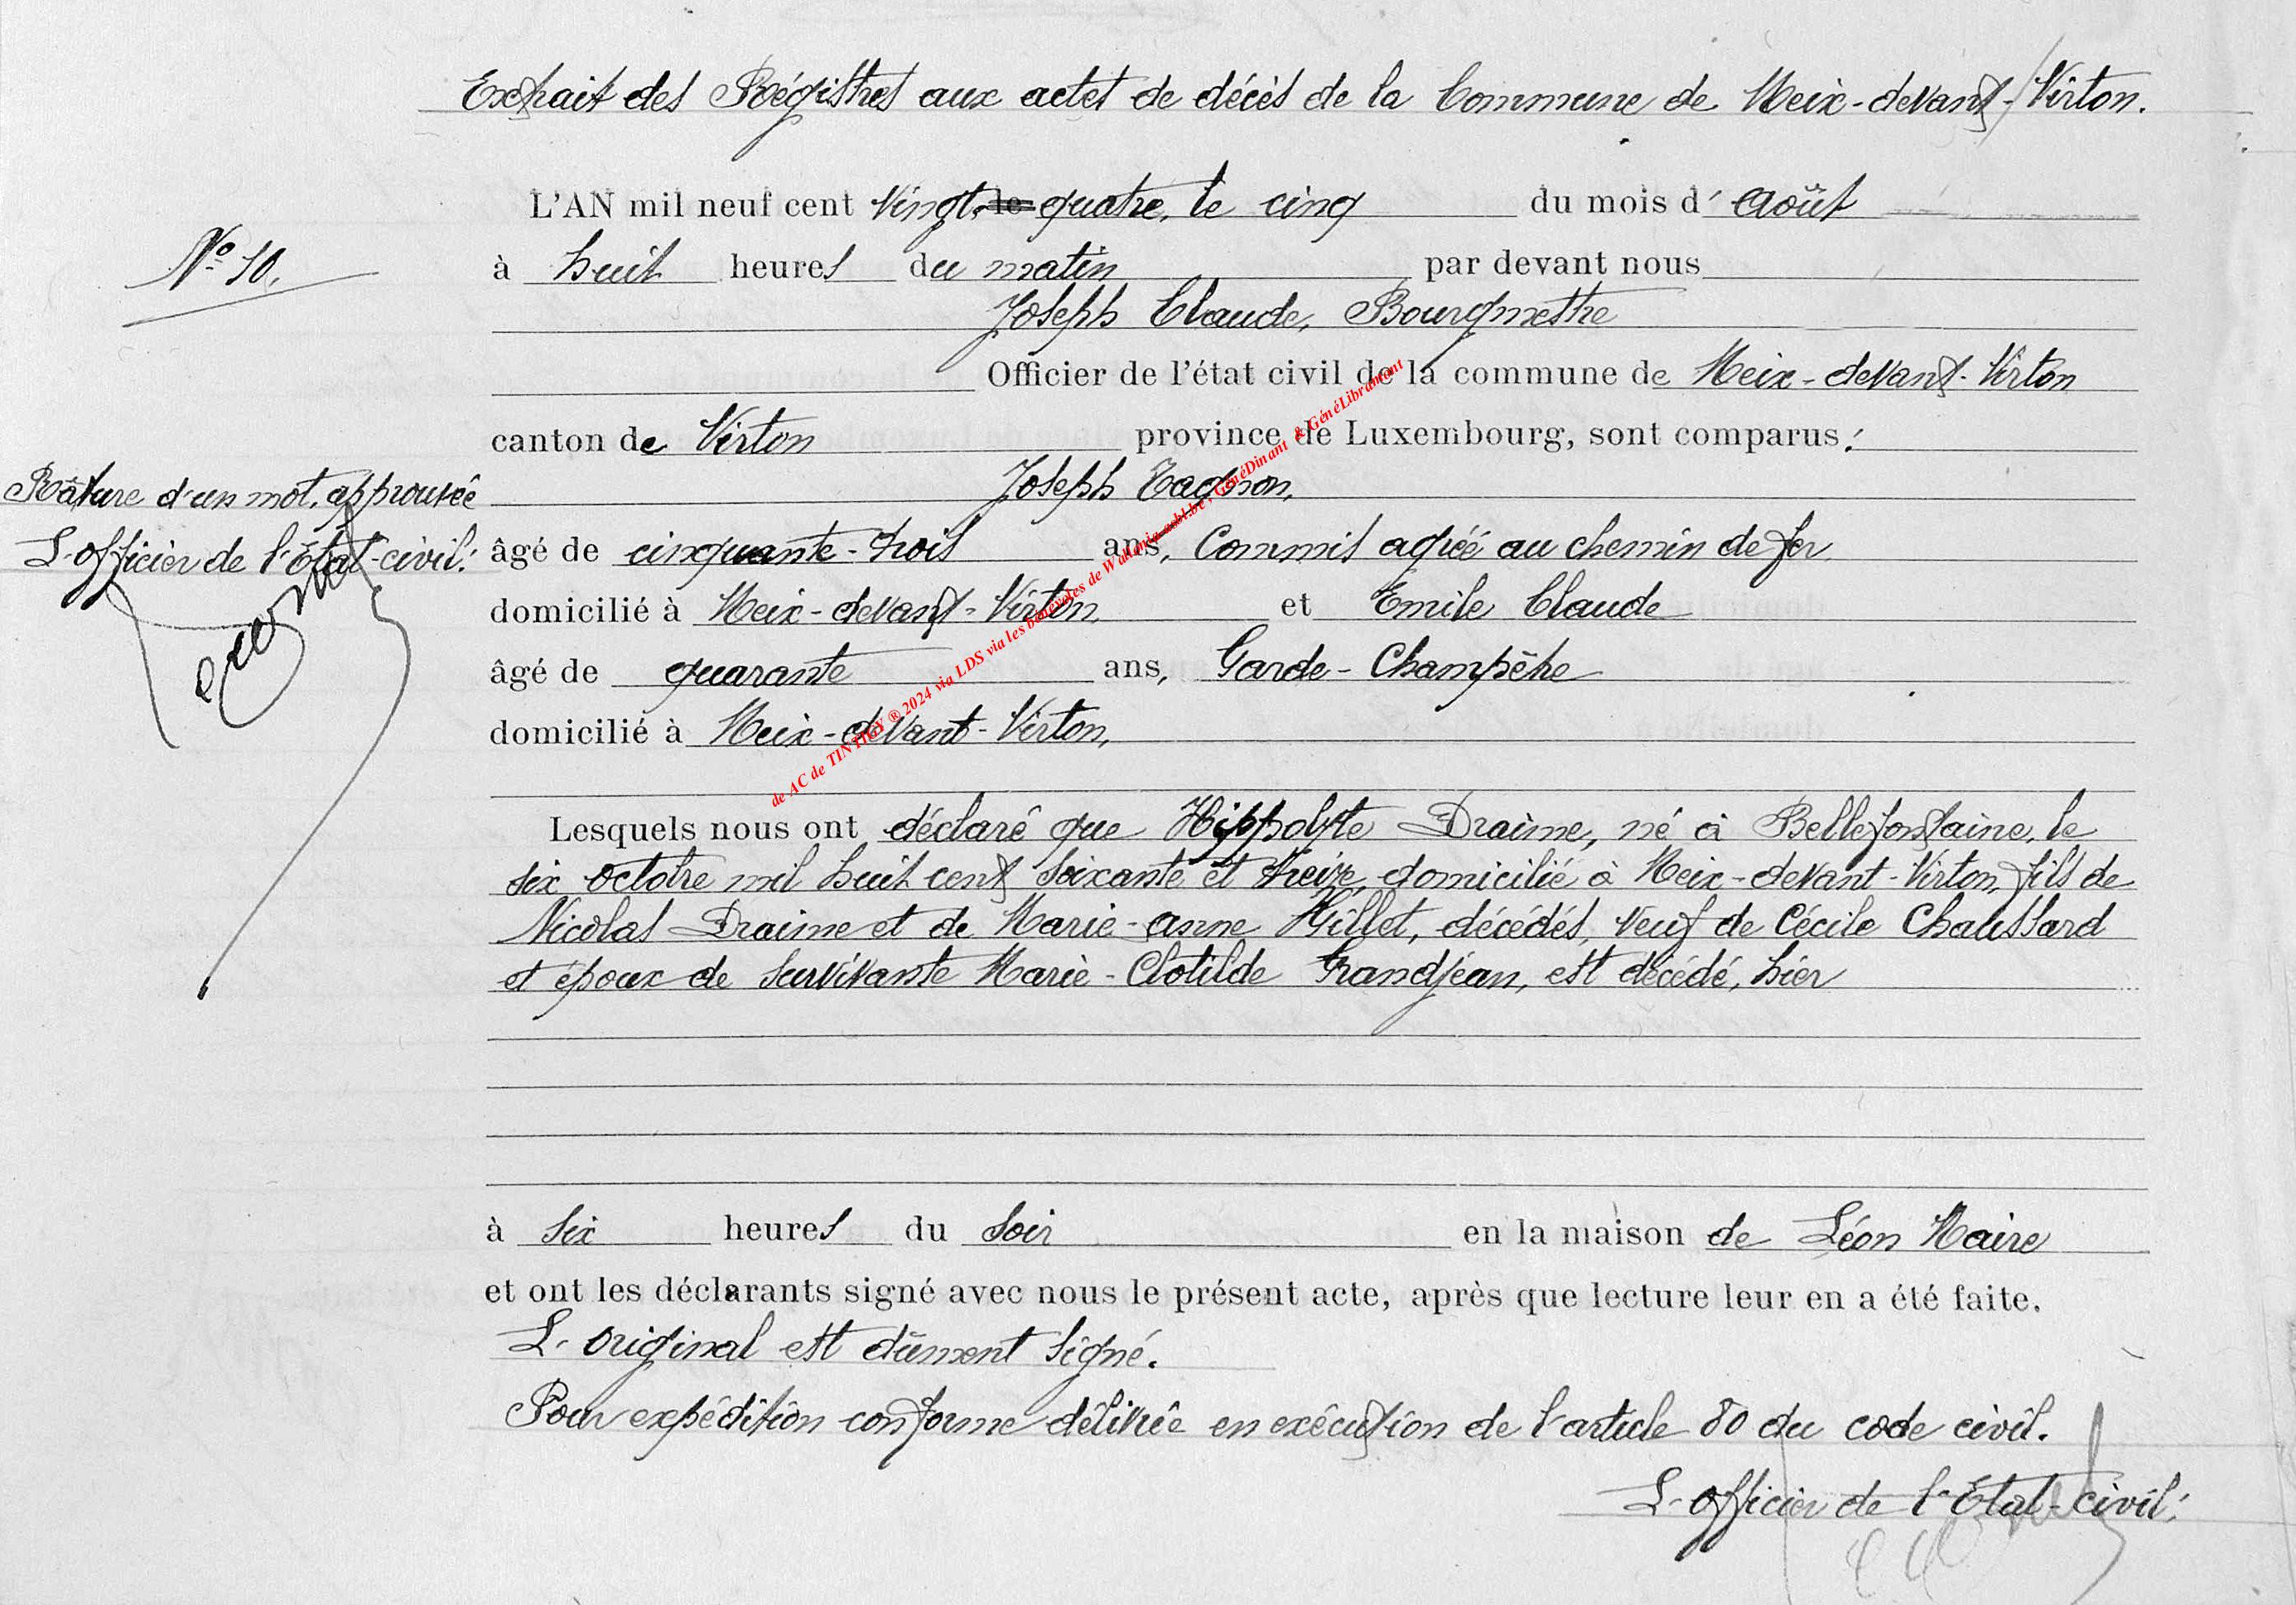 Extrait des Régistres aux actes de décès de la Commune de Meix-devant-Virton.
L'AN mil neuf cent vingt-le quatre, le cinq du mois d' Août
N° 10.
à huit heures du matin par devant nous
Joseph Claude, Bourgmestre
Officier de l'état civil de la commune de Meix-devant-Virton
canton de Virton province de Luxembourg, sont comparus :
Joseph Tagnon,
Râture d'un mot, approuvée
L'officier de l'Etat-civil :
âgé de cinquante-trois ans, Commis agréé au chemin de fer
domicilié à Meix-devant-Virton et Emile Claude
âgé de quarante ans, Garde-Champêtre
domicilié à Meix-devant-Virton,
de AC de TINTIGNY ® 2024 via LDS via les bénévoles de Wallonia asbl.be, GénéDinant & GénéLibramont
Lesquels nous ont déclaré que Hippolyte Draime, né à Bellefontaine, le
six octobre mil huit cent soixante et treize, domicilié à Meix-devant-Virton, fils de
Nicolas Draime et de Marie-anne Gillet, décédés, veuf de Cécile Chaussard
et époux de survivante Marie-Clotilde Grandjéan, est décédé, hier
à six heures du soir en la maison de Léon Maire
et ont les déclarants signé avec nous le présent acte, après que lecture leur en a été faite.
L'original est dûment signé.
Pour expédition conforme délivrée en exécution de l'article 80 du code civil.
L'officier de l'Etat-civil :